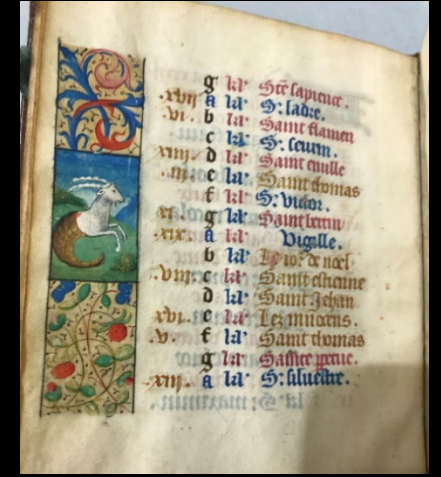 g kl' Ste sapience.
.xvii. a kl' S: ladre.
.vi. b kl' Saint flamen
c kl' S: seurin.
xiiii. d kl' Saint
.iii. e kl' Saint thomas
f kl' S: victor.
xi. g kl' Saint
.xix. a kl' Vigille.
b kl' Le ior de noel
viii. c kl' Saint estienne
d kl' Saint Jehan
.xvi. e kl' Lez innocens.
.v. f kl' Saint thomas
g kl'
.xiii. a kl' S: siluestre.